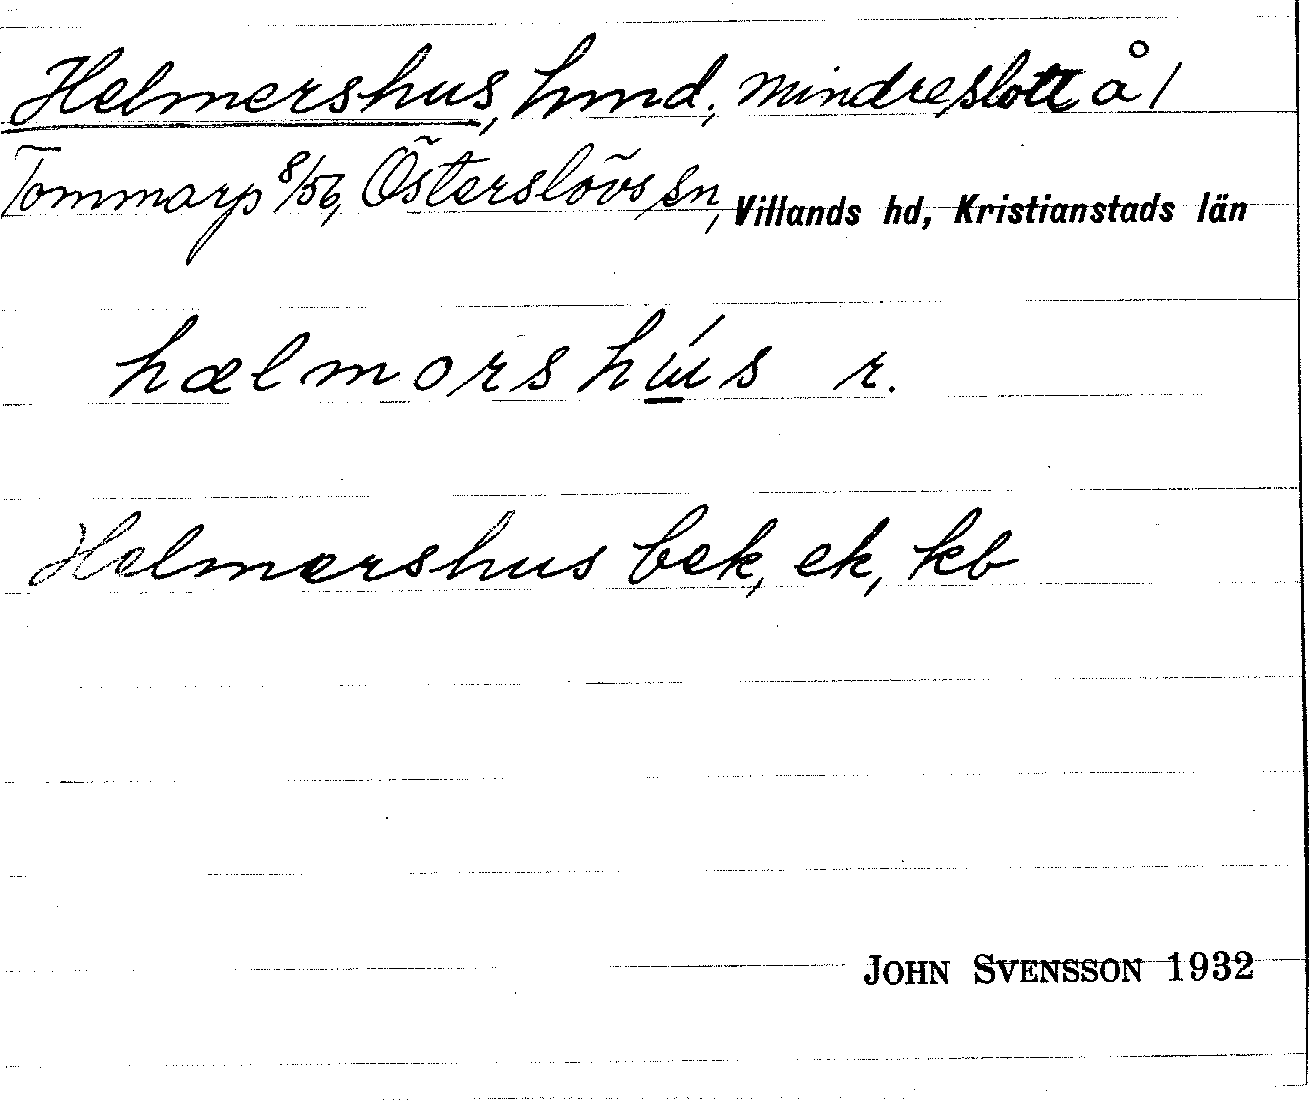 Helmershus, hmd, mindre slott å 1
Tommarp 8/56, Österslövs sn, Villands hd, Kristianstads län
hælmorshús r.
Helmershus bek, ek, kb
JOHN SVENSSON 1932